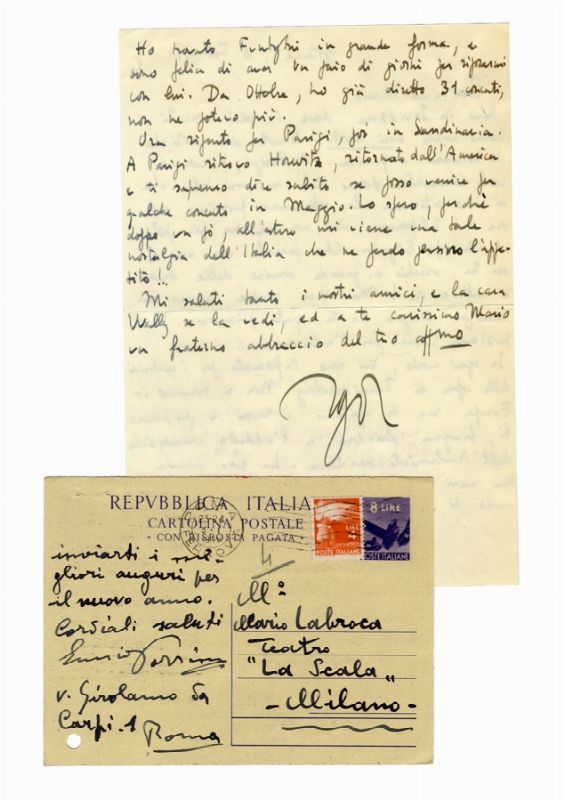 Ho trovato in grande forma, e
sono felice di aver un paio di giorni per riposarmi
con lui. Da Ottobre, ho già diretto 31 concerti,
non ne potevo più.
Ora riparto per Parigi, poi in Scandinavia.
A Parigi ritrovo Horwitz, ritornato dall'America
e ti sapremo dire subito se posso venire per
qualche concerto in Maggio. Lo spero, perché
doppo un pò all'estero mi viene una tale
nostalgia dell'Italia che ne perdo persino l'appe-
tito!!
Mi saluti tanto i nostri amici, e la cara
Wally se la vedi, ed a te carissimo Mario
un fraterno abbraccio del tuo affmo
Igor
REPVBBLICA ITALIA
CARTOLINA POSTALE
• CON RISPOSTA PAGATA •
LIRE 4
POSTE ITALIANE
8 LIRE
POSTE ITALIANE
4
inviarti i mi-
gliori auguri per
il nuovo anno.
Cordiali saluti
Ennio Porrino
v. Girolamo da
Carpi. 1
Roma
M°
Mario Labroca
Teatro
"La Scala"
- Milano -